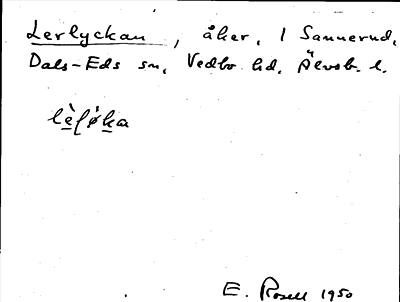 Lerlyckan, åker, 1 Sannerud,
Dals-Eds sn, Vedbo hd, Älvsb. l.
lèʃø̀ka
E. Rosell 1950